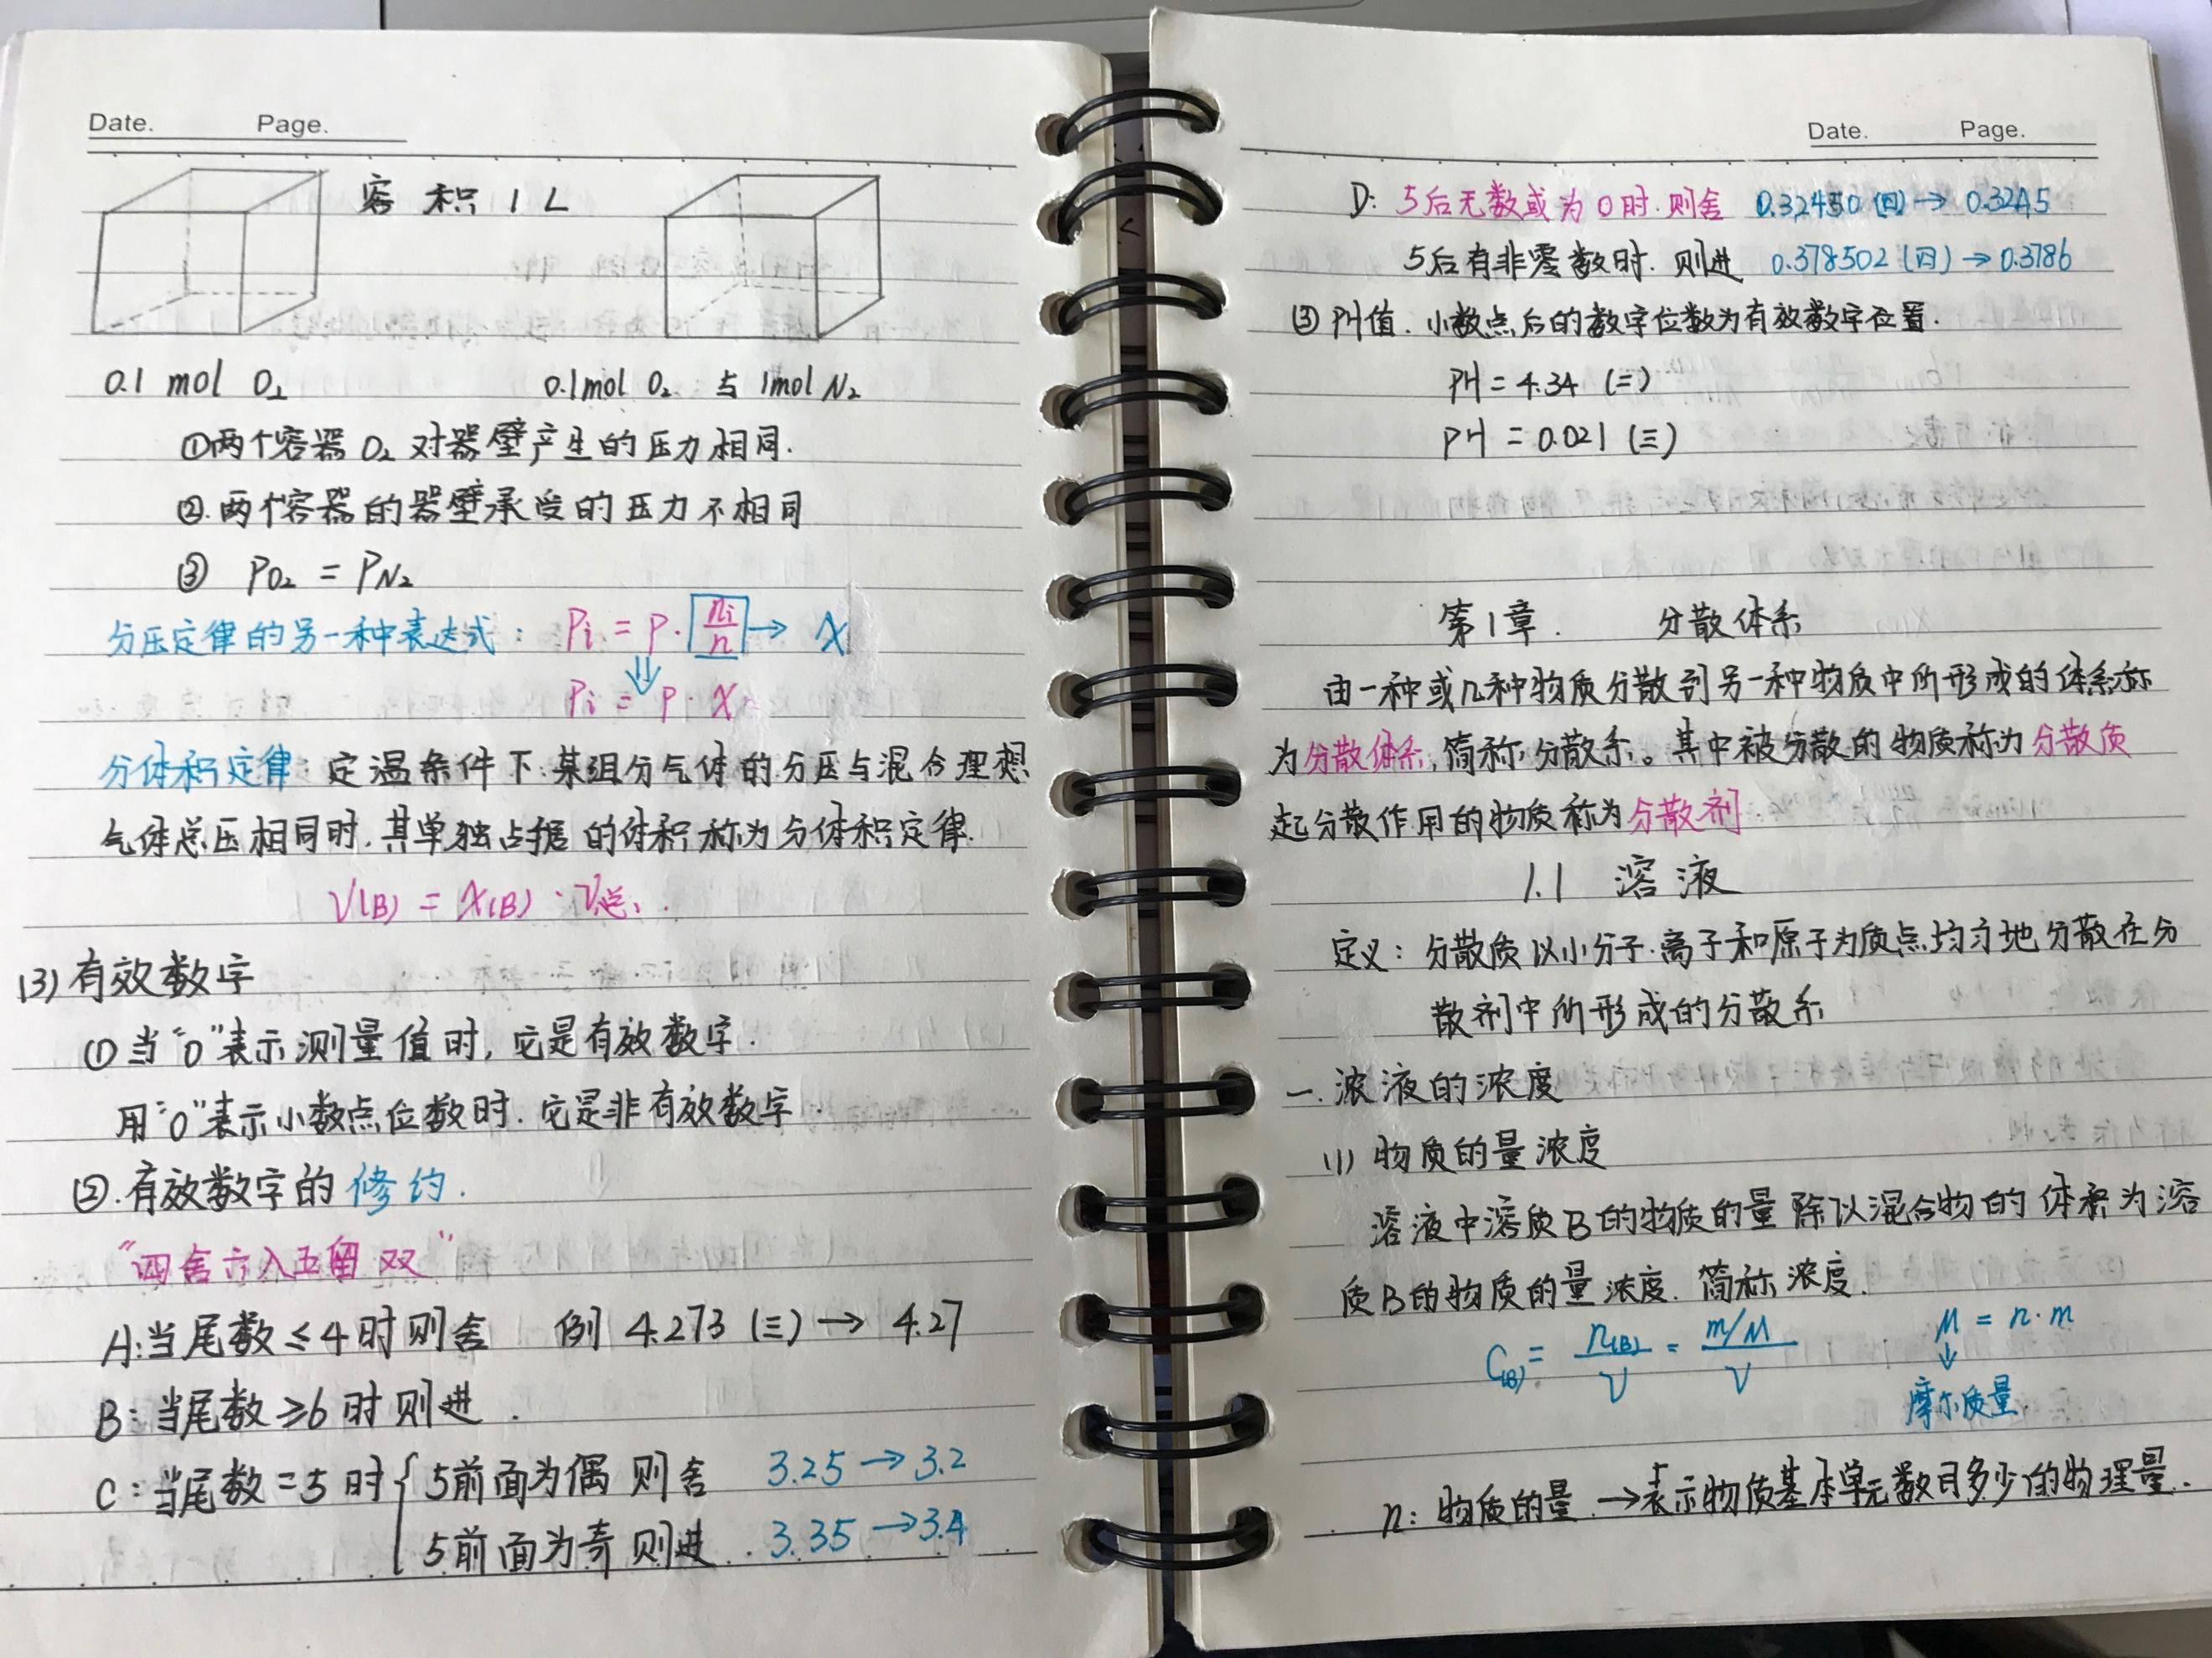 Date. Page.
容积1L
0.1 mol O₂ 0.1mol O₂ 与 1mol N₂
①两个容器 O₂ 对器壁产生的压力相同.
②.两个容器的器壁承受的压力不相同
③ PO₂ = PN₂
分压定律的另一种表达式: Pi = P · ni/n → X
⇓
Pi = P · X
分体积定律: 定温条件下.某组分气体的分压与混合理想
气体总压相同时.其单独占据的体积称为分体积定律.
V(B) = X(B) · V总.
(3) 有效数字
①当“0”表示测量值时, 它是有效数字.
用“0”表示小数点位数时. 它是非有效数字
②.有效数字的修约.
“四舍六入五留双”
A:当尾数≤4时则舍 例 4.273 (三) → 4.27
B:当尾数≥6时则进.
C:当尾数=5时{5前面为偶则舍 3.25→3.2
5前面为奇则进. 3.35→3.4
Date. Page.
D: 5后无数或为0时.则舍 0.32450(四)→ 0.3245
5后有非零数时. 则进 0.378502(四)→0.3786
③ PH值. 小数点后的数字位数为有效数字位置.
PH = 4.34 (二)
PH = 0.021 (三)
第1章. 分散体系
由一种或几种物质分散到另一种物质中所形成的体系称
为分散体系,简称分散系。其中被分散的物质称为分散质
起分散作用的物质称为分散剂
1.1 溶液
定义: 分散质以小分子.离子和原子为质点均匀地分散在分
散剂中所形成的分散系
一.浓液的浓度
(1) 物质的量浓度
溶液中溶质B的物质的量除以混合物的体积为溶
质B的物质的量浓度. 简称浓度.
C(B) = n(B)/V = m/M/V M = n·m
↓
摩尔质量.
n: 物质的量.→表示物质基本单元数目多少的物理量.